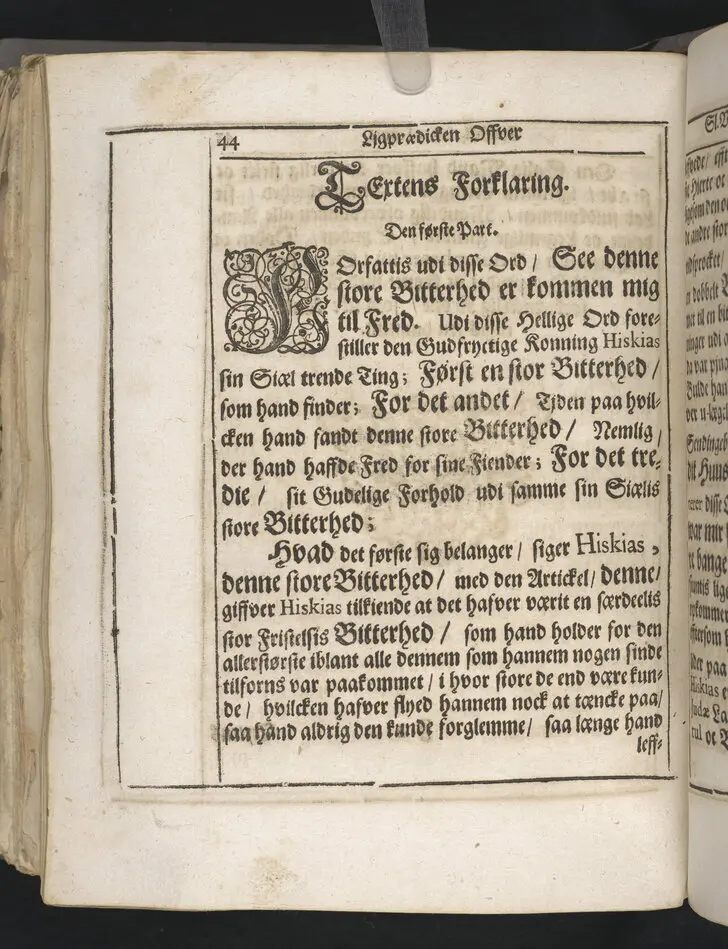 44
Ljgprædicken Offver
TExtens Forklaring.
Den første Part.
FOrfattis udi disse Ord / See denne
store Bitterhed er kommen mig
til Fred. Udi disse Hellige Ord fore-
stiller den Gudfryctige Konning Hiskias
sin Siæl trende Ting; Først en stor Bitterhed /
som hand finder; For det andet / Tjden paa hvil-
cken hand fandt denne store Bitterhed / Nemlig /
der hand haffde Fred for sine Fiender; For det tre-
die / sit Gudelige Forhold udi samme sin Siælis
store Bitterhed;
Hvad det første sig belanger / siger Hiskias,
denne store Bitterhed / med den Artickel / denne /
giffver Hiskias tilkiende at det hafver værit en særdeelis
stor Fristelsis Bitterhed / som hand holder for den
allerstørste iblant alle dennem som hannem nogen sinde
tilforns var paakommet / i hvor store de end være kun-
de / hvilcken hafver flyed hannem nock at tæncke paa /
saa hand aldrig den kunde forglemme / saa længe hand
leff-